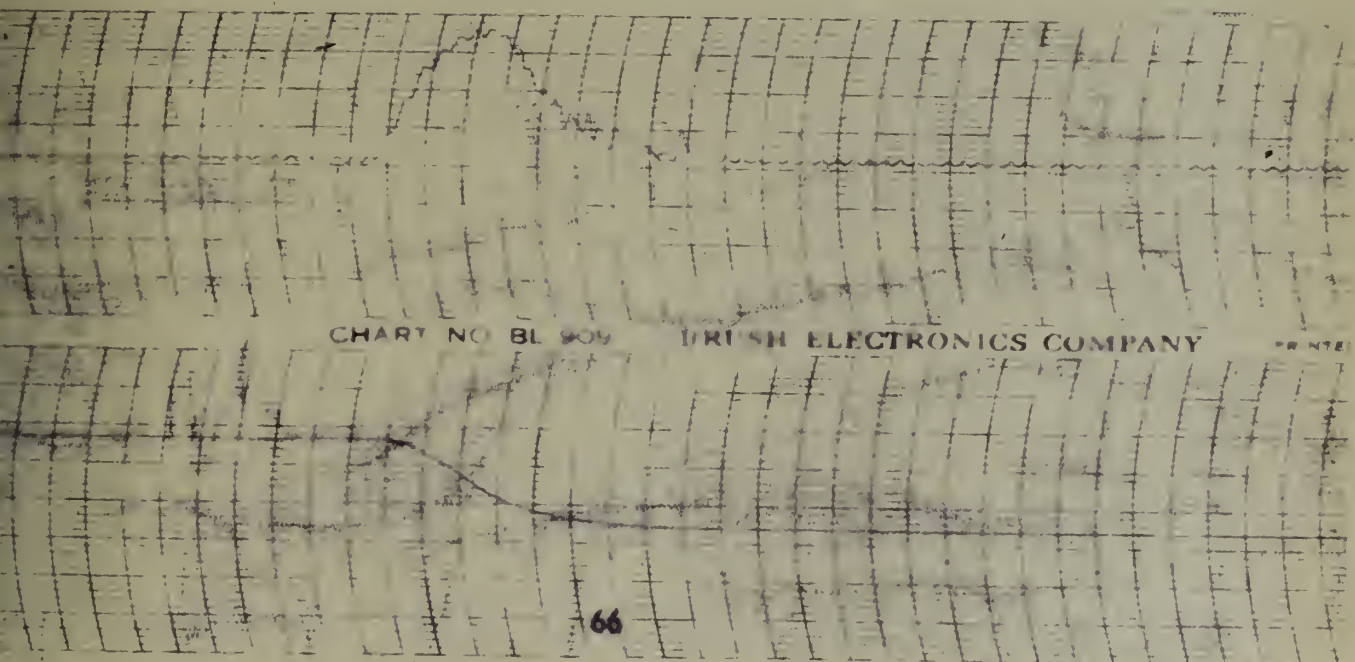 CHART NO BL 909 BRUSH ELECTRONICS COMPANY PRINTE
66